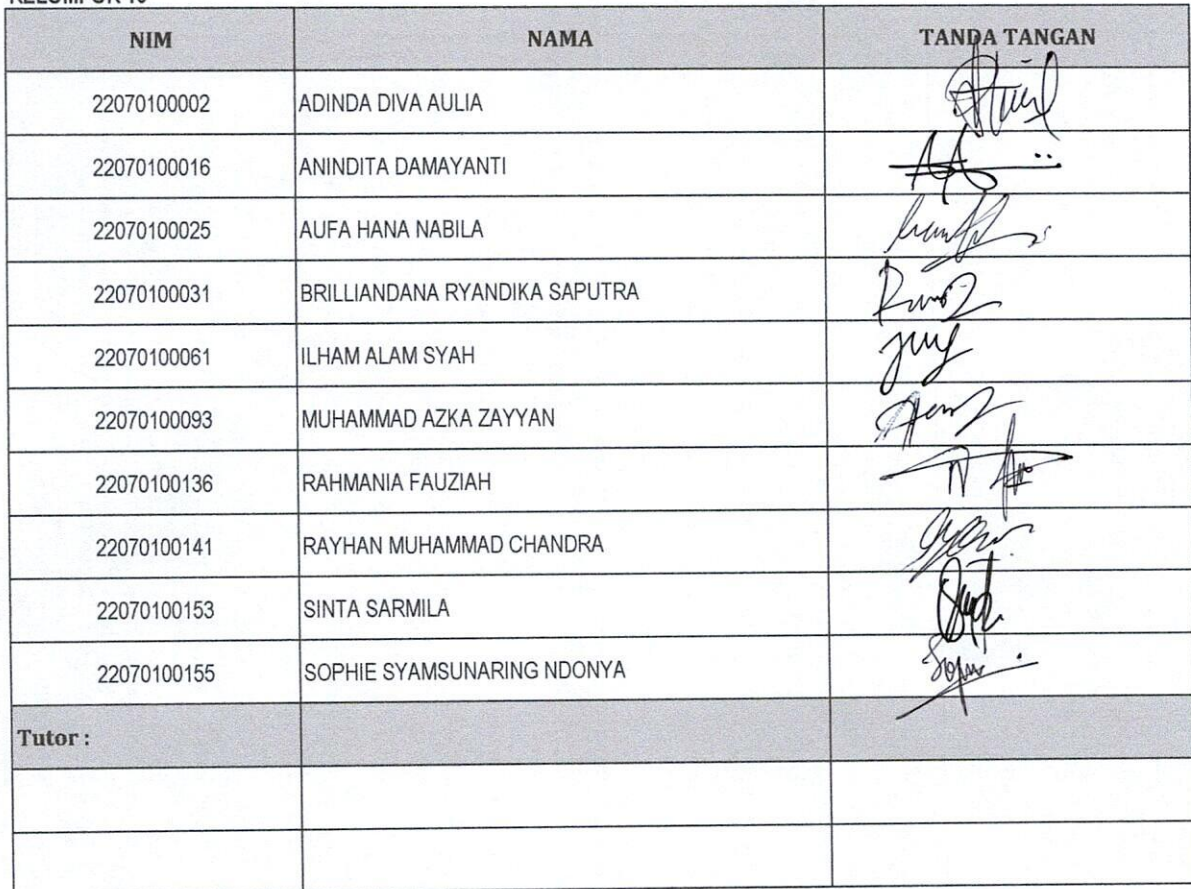 NIM NAMA TANDA TANGAN
22070100002 ADINDA DIVA AULIA
22070100016 ANINDITA DAMAYANTI
22070100025 AUFA HANA NABILA
22070100031 BRILLIANDANA RYANDIKA SAPUTRA
22070100061 ILHAM ALAM SYAH
22070100093 MUHAMMAD AZKA ZAYYAN
22070100136 RAHMANIA FAUZIAH
22070100141 RAYHAN MUHAMMAD CHANDRA
22070100153 SINTA SARMILA
22070100155 SOPHIE SYAMSUNARING NDONYA
Tutor :